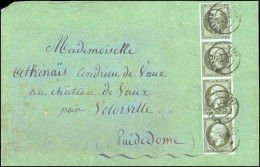 Mademoiselle
Athénaïs Andrieu de Vaux
au château de Vaux
par Volorville.
Puidedome)